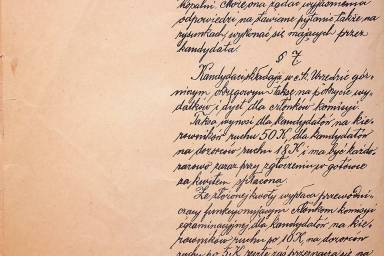 kopalni. Chcące zadać wyjaśnienia
odpowiedzi na stawiane pytanie także na
rysunkach, wykonać się mających przez
kandydata.
§ 7
Kandydaci składają w c. k. Urzędzie gór-
niczym okręgowym taksę na pokrycie wy-
datków i dyet dla członków komisyi.
Taksa wynosi dla kandydatów na kie-
rowników ruchu 50 K, dla kandydatów
na dozorców ruchu 18 K i ma być każdo-
razowo zaraz przy zgłoszeniu w gotówce
za kwitem spłacona.
Ze złożonej kwoty wypłaca przewodni-
czący funkcyonującym członkom komisyi
egzaminacyjnej dla kandydatów na kie-
rowników ruchu po 18 K, na dozorców
ruchu po 5 K, resztę zaś przeznacza się na